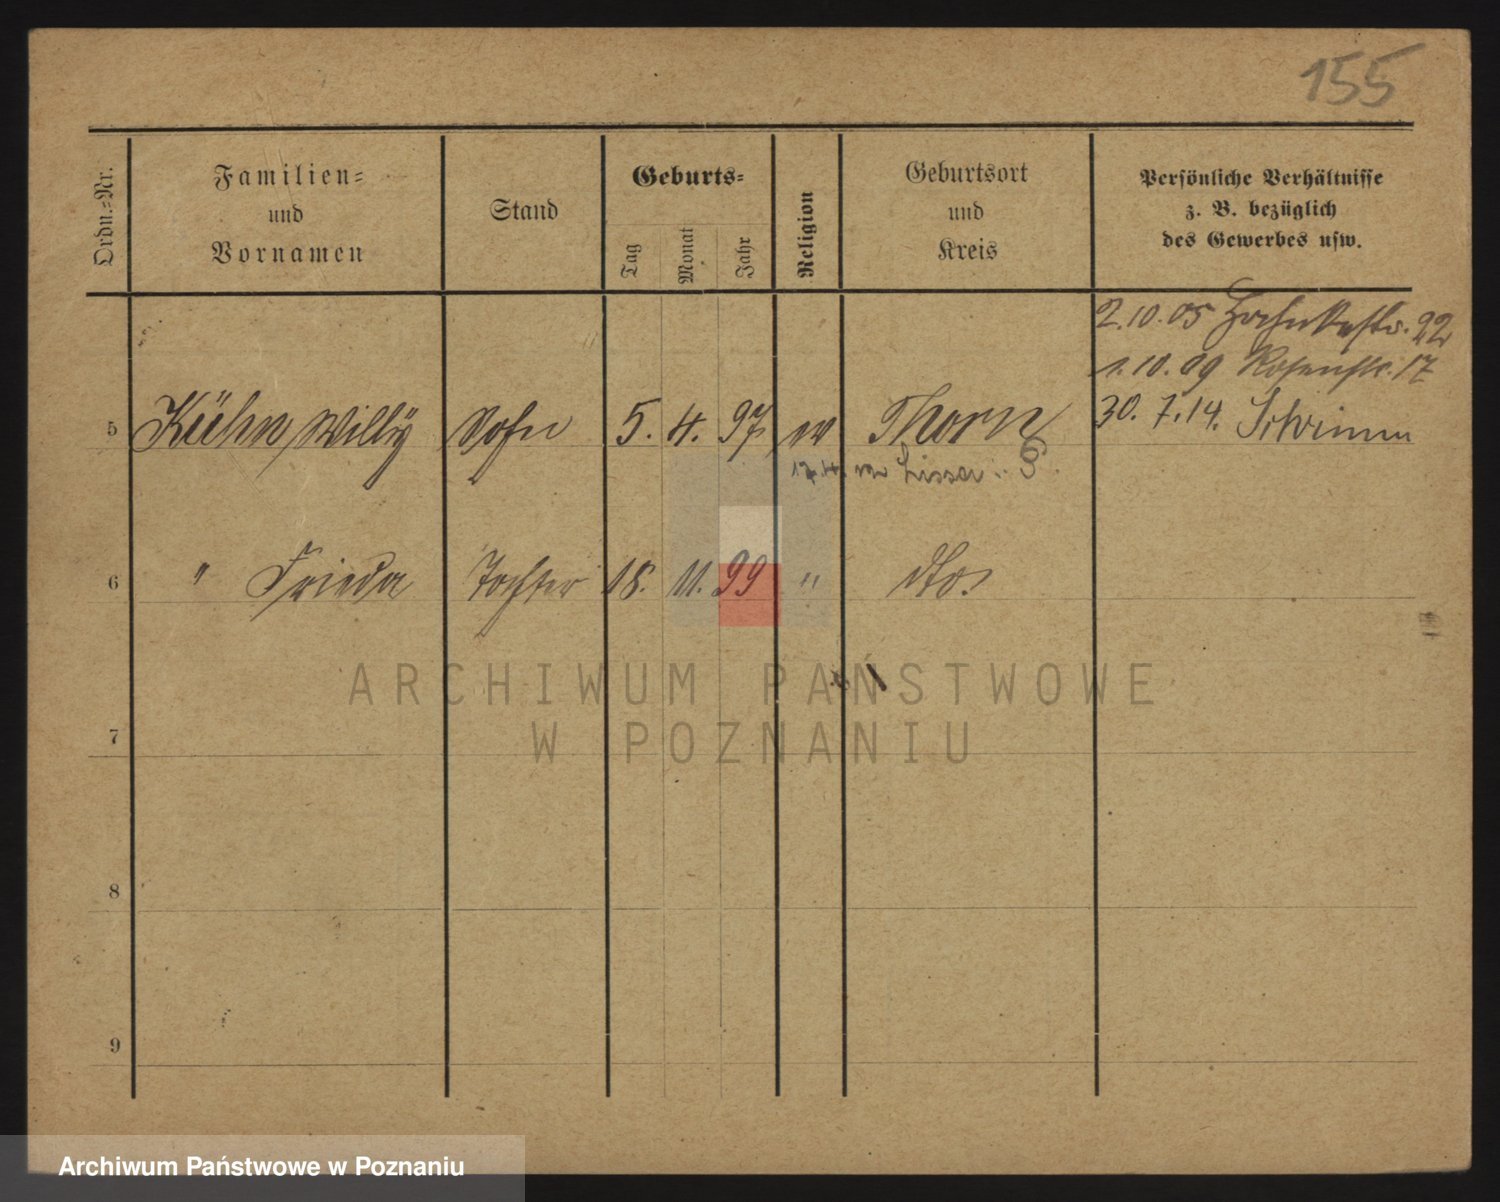 155
Ordn.-Nr.
Familien-
und
Vornamen
Stand
Geburts-
Tag
Monat
Jahr
Religion
Geburtsort
und
Kreis
Persönliche Verhältnisse
z. B. bezüglich
des Gewerbes usw.
2.10.05 22
1.10.09 Rosenstr. 17
30.7.14.
5 Kühn, Willy Sohn 5. 4. 97 ev Thorn
Lissa i. P.
6 " Frieda Tochter 18. 11. 99 " dto.
ARCHIWUM PAŃSTWOWE
W POZNANIU
7
8
9
Archiwum Państwowe w Poznaniu